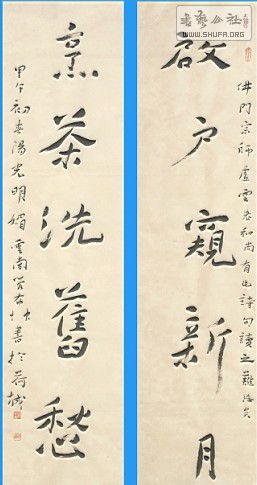 書藝公社
WWW.SHUFA.ORG
佛門宗師虛雲老和尚有此詩句讀之難忘矣
啟户窺新月
烹茶洗舊愁
甲午初春陽光明媚雲南書於荷城